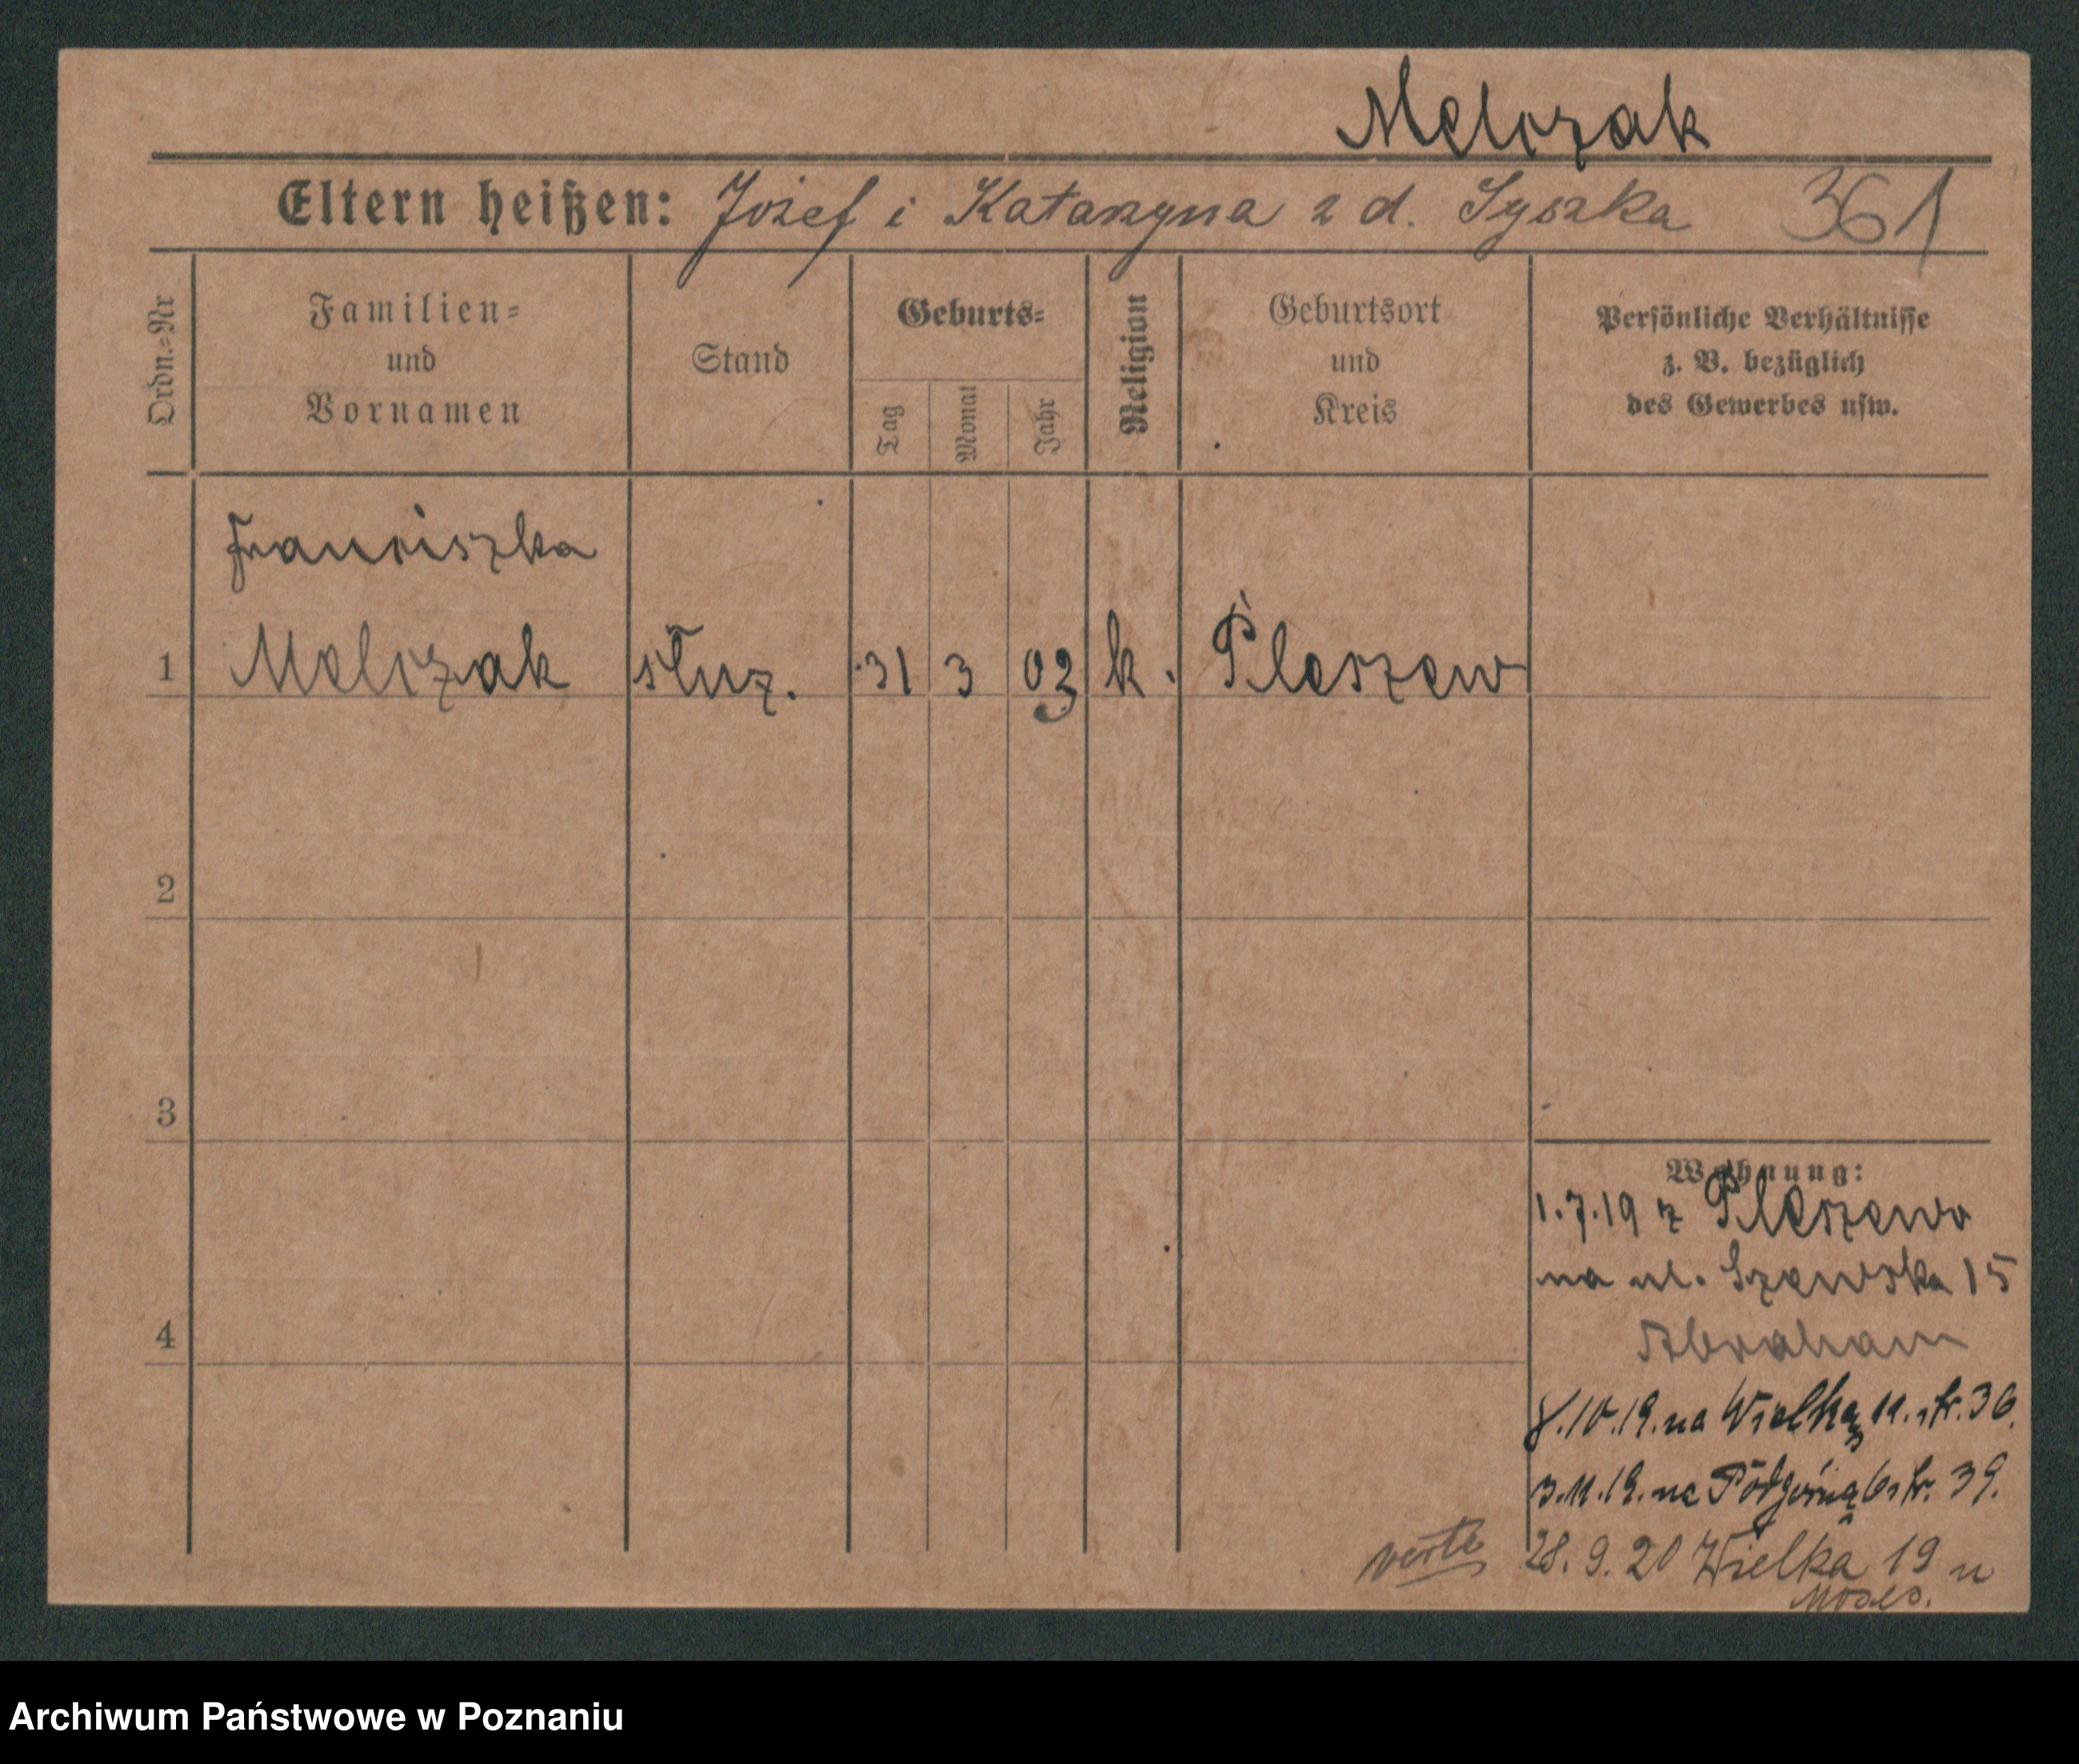 Melczak
Eltern heißen: Józef i Katarzyna z d. Syszka 361
Ordn.-Nr
Familien-
und
Vornamen
Stand
Geburts-
Tag
Monat
Jahr
Religion
Geburtsort
und
Kreis
Persönliche Verhältnisse
z. B. bezüglich
des Gewerbes usw.
Franciszka
1 Melczak służ. 31 3 03 k. Pleszew
2
3
4
Wohnung:
1.7.19 z Pleszewa
na ul. Szewska 15
Abraham
8.10.19. na Wielką 11. str. 36.
3.11.19. na Podgórną 6 str. 39.
verte 28.9.20 Wielka 19 u
Moses.
Archiwum Państwowe w Poznaniu